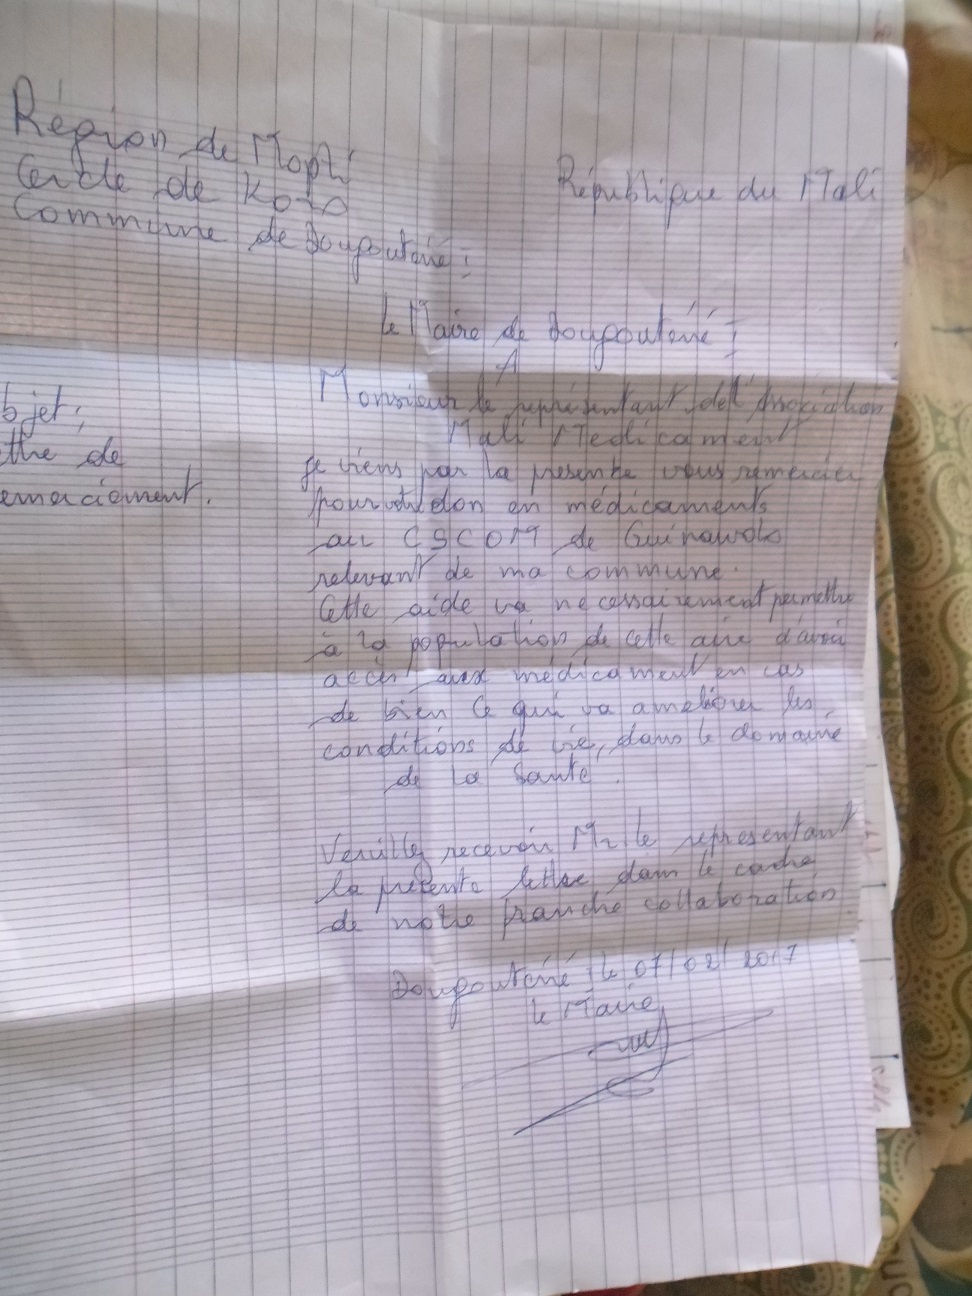 Région de Mopti
Cercle de Koro
République du Mali
Commune de Dougoutené I
le Maire de Dougoutené I
A
Monsieur le représentant de l'Association
Mali Medicament
bjet;
ttre de
emerciement.
Je viens par la presente vous remercier
pour votre don en médicaments
au CSCOM de Guinawolo
relevant de ma commune.
Cette aide va necessairement permettre
à la population de cette aire d'avoir
accès aux médicament en cas
de bien Ce qui va ameliorer les
conditions de vie, dans le domaine
de la Santé.
Veuillez recevoir Mr le representant
la présente lettre dans le cadre
de notre franche collaboration.
Dougoutené I le 07/02/2017
le Maire